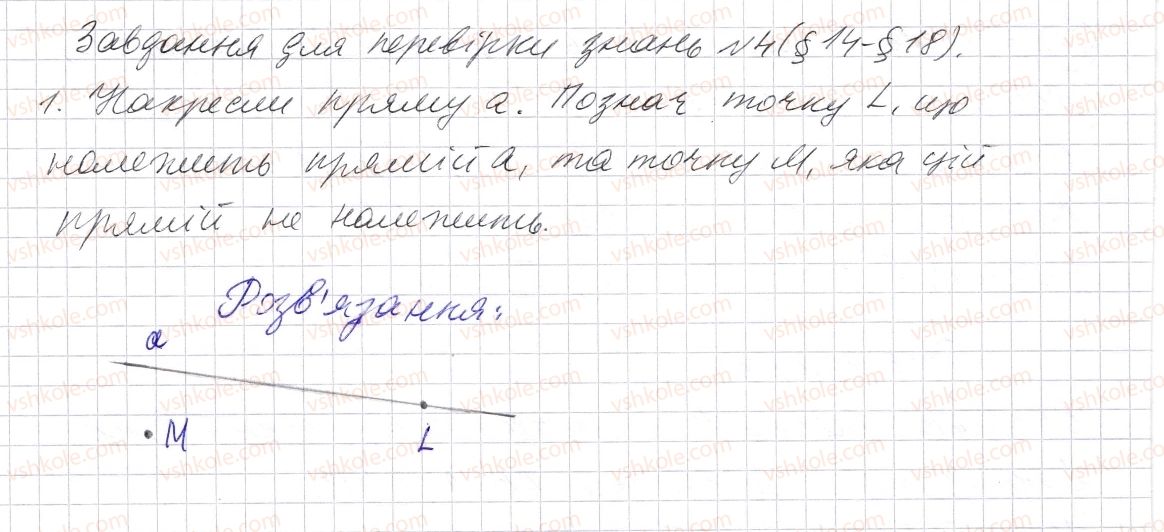 Завдання для перевірки знань №4(§14-§18).
1. Накресли пряму a. Познач точку L, що
належить прямій a, та точку M, яка цій
прямій не належить.
Розв'язання:
a
M
L
vshkole.com